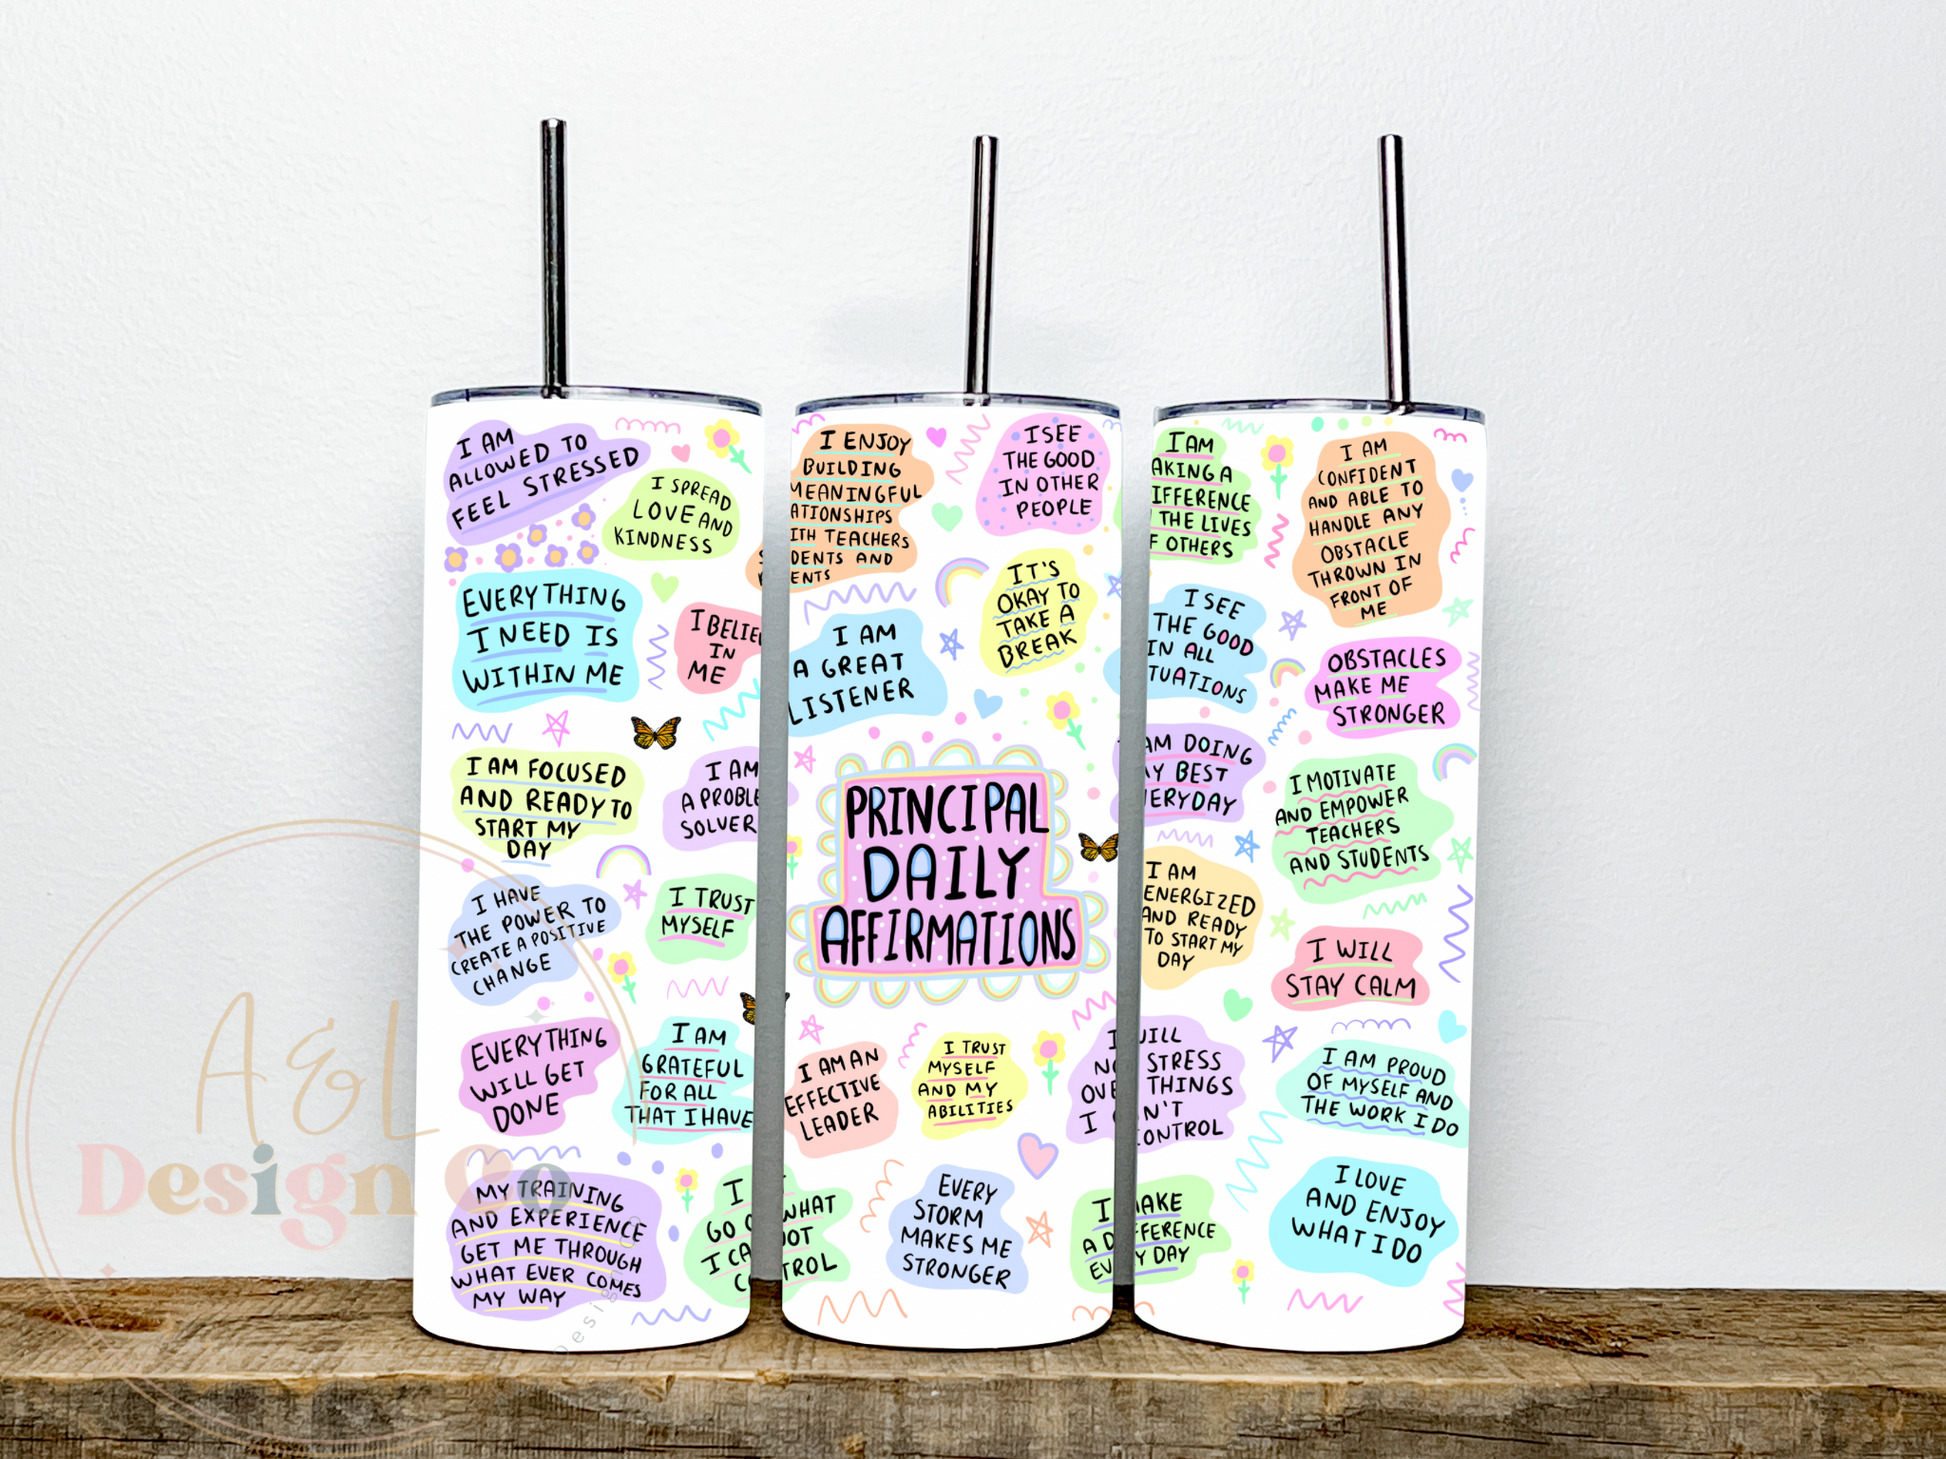 I AM
ALLOWED TO
FEEL STRESSED
I SPREAD
LOVE AND
KINDNESS
EVERYTHING
I NEED IS
WITHIN ME
I BELIE
IN
ME
I AM FOCUSED
AND READY TO
START MY
DAY
I AM
A PROBLE
SOLVER
I HAVE
THE POWER TO
CREATE A POSITIVE
CHANGE
I TRUST
MYSELF
EVERYTHING
WILL GET
DONE
I AM
GRATEFUL
FOR ALL
THAT I HAVE
MY TRAINING
AND EXPERIENCE
GET ME THROUGH
WHAT EVER COMES
MY WAY
I
GO O WHAT
I CA NOT
CO TROL
I ENJOY
BUILDING
MEANINGFUL
ATIONSHIPS
ITH TEACHERS
S DENTS AND
ENTS
I SEE
THE GOOD
IN OTHER
PEOPLE
IT'S
OKAY TO
TAKE A
BREAK
I AM
A GREAT
LISTENER
PRINCIPAL
DAILY
AFFIRMATIONS
I AM AN
EFFECTIVE
LEADER
I TRUST
MYSELF
AND MY
ABILITIES
EVERY
STORM
MAKES ME
STRONGER
I WILL
NO STRESS
OVE THINGS
I C N'T
ONTROL
I MAKE
A D FFERENCE
EV Y DAY
I AM
AKING A
IFFERENCE
THE LIVES
F OTHERS
I AM
CONFIDENT
AND ABLE TO
HANDLE ANY
OBSTACLE
THROWN IN
FRONT OF
ME
I SEE
THE GOOD
IN ALL
TUATIONS
OBSTACLES
MAKE ME
STRONGER
AM DOING
MY BEST
ERYDAY
I MOTIVATE
AND EMPOWER
TEACHERS
AND STUDENTS
I AM
ENERGIZED
AND READY
TO START MY
DAY
I WILL
STAY CALM
I AM PROUD
OF MYSELF AND
THE WORK I DO
I LOVE
AND ENJOY
WHAT I DO
A&L
Design Co